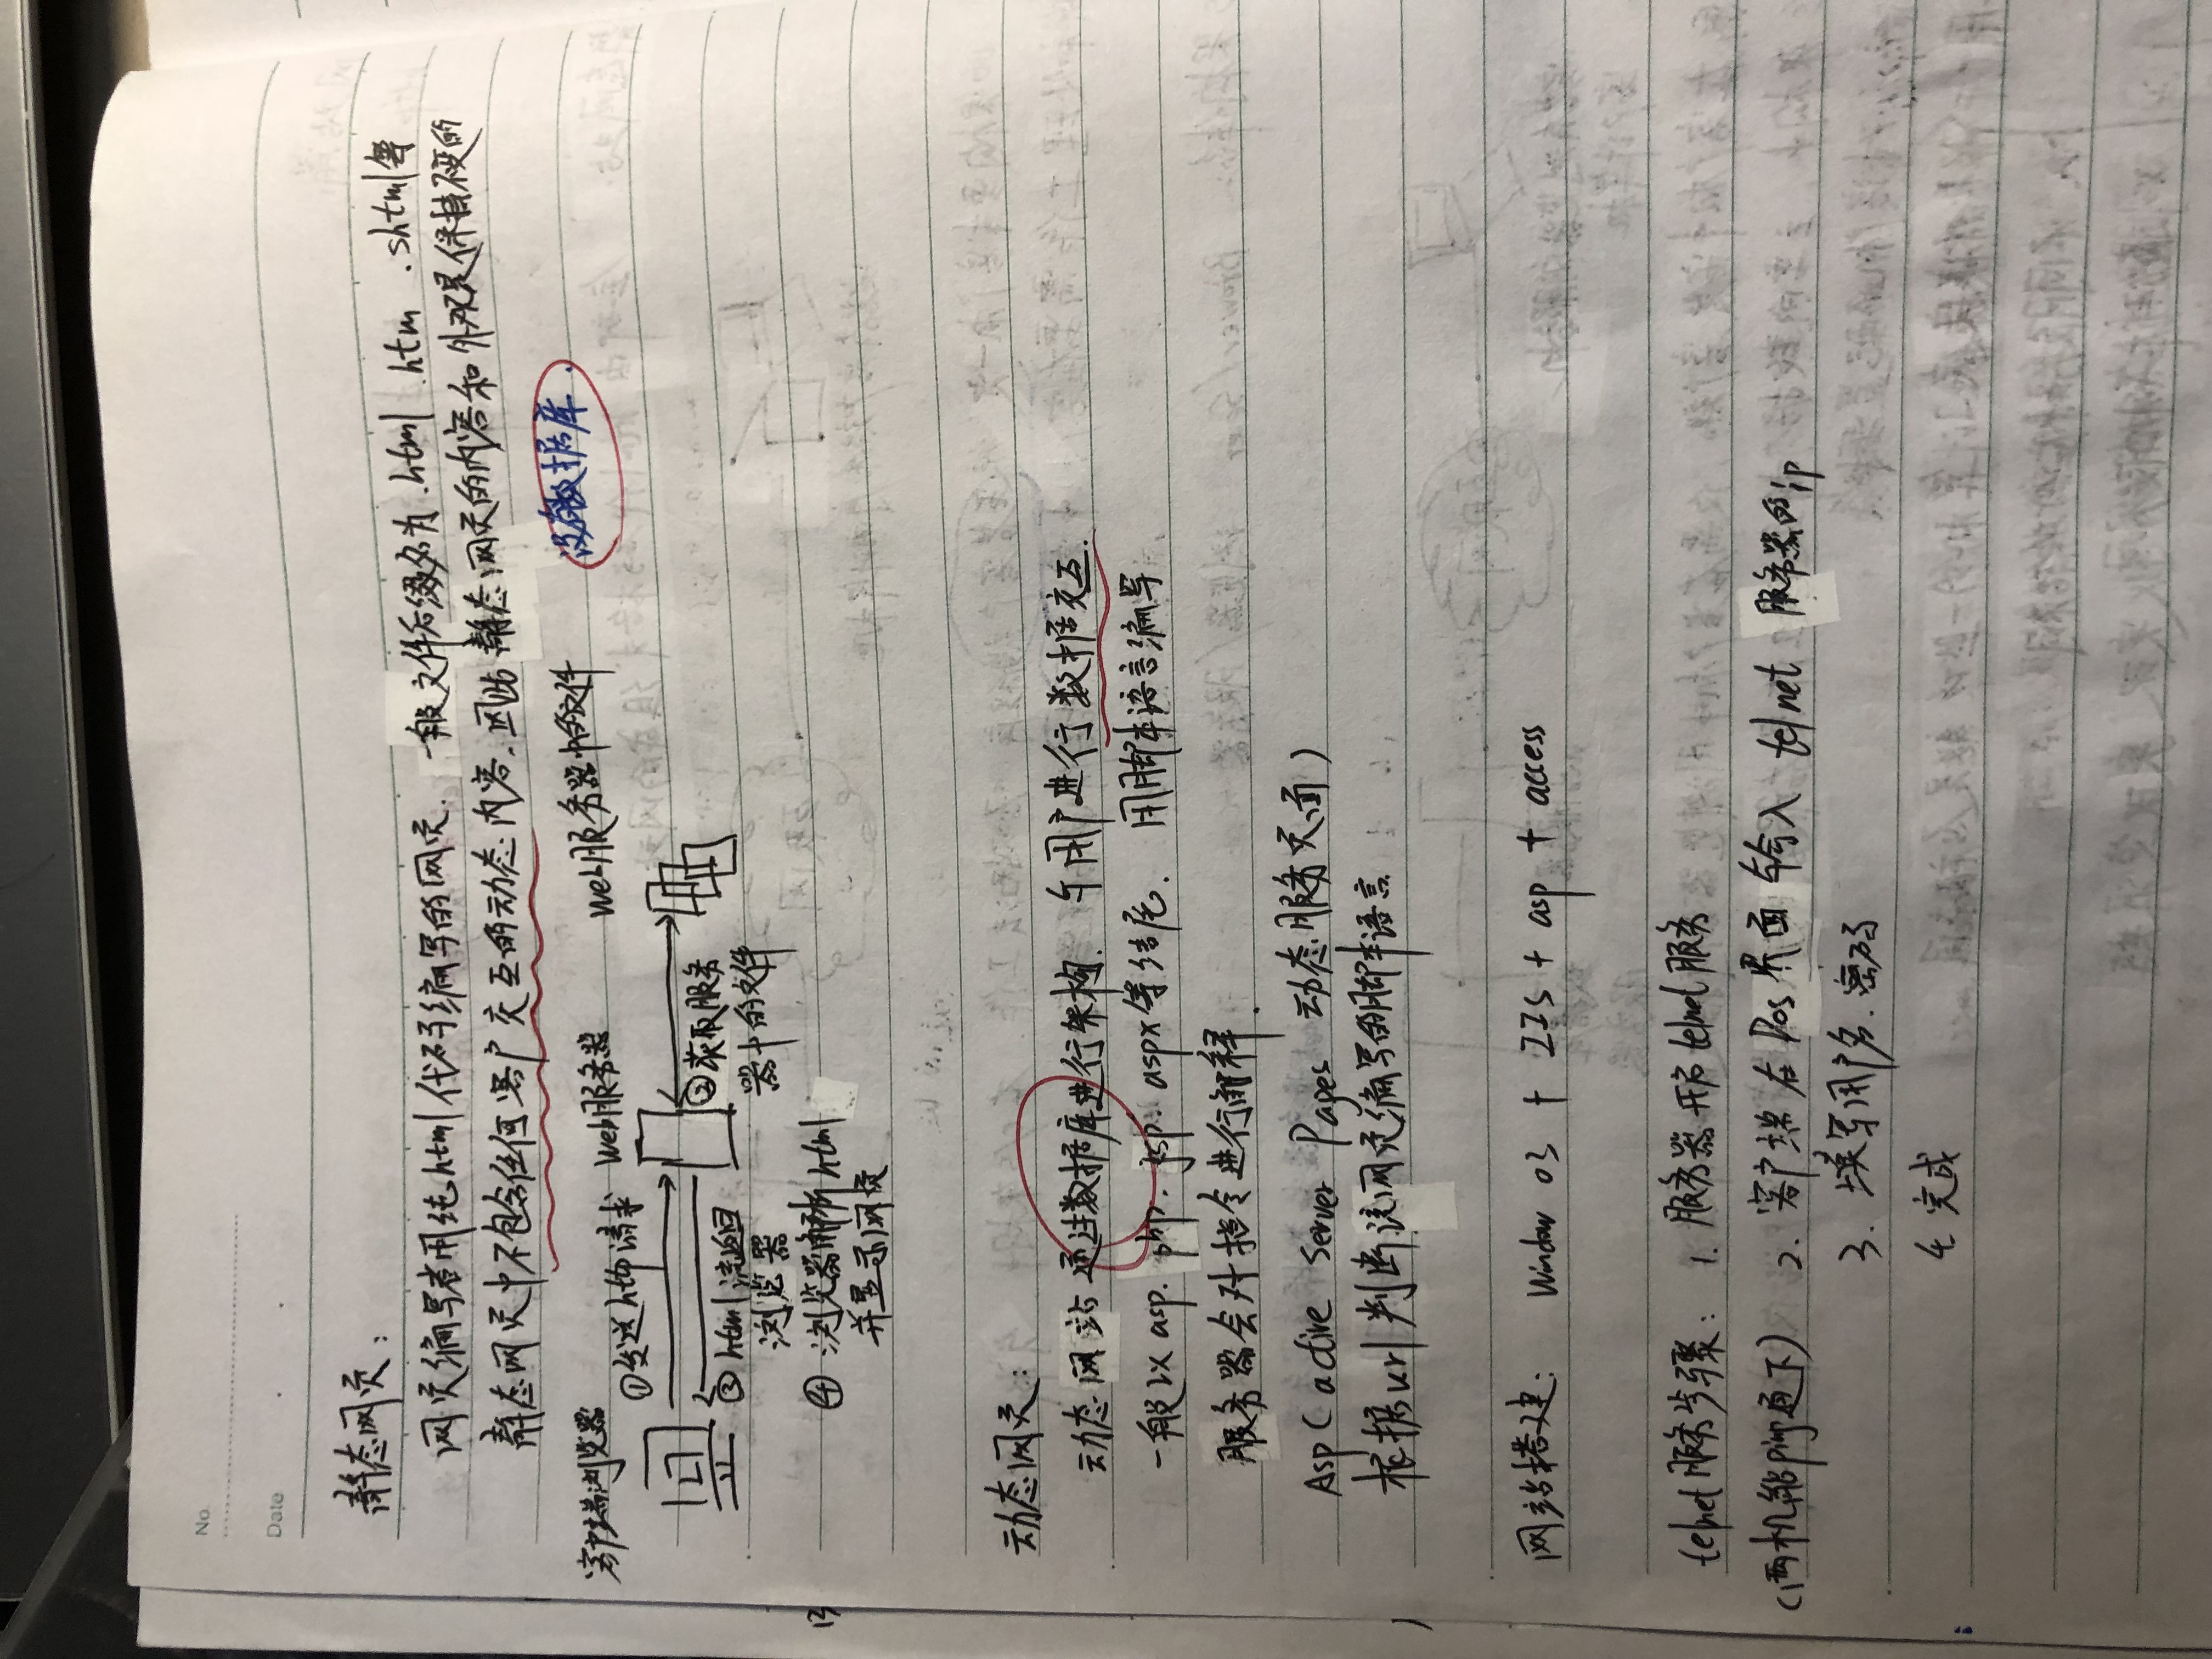 No.
Date
静态网页：
网页编写者用纯html代码编写的网页. 一般文件后缀名为.html .htm .shtml等
静态网页中不包含任何客户交互的动态内容.因此静态网页的内容和外观是保持不变的
没有数据库.
客户端浏览器 web服务器 web服务器中的文件
①发送http请求
②获取服务
器中的文件
③html流返回
浏览器
④浏览器解析html
并显示网页
动态网页：
动态网站通过数据库进行架构. 与用户进行数据交互.
一般以asp. php. jsp. aspx等结尾. 用脚本语言编写
服务器会对指令进行解释.
Asp (active Server Pages 动态服务页面)
根据url判断该网页编写的脚本语言
网站搭建: Window 03 + IIS + asp + access
telnet服务步骤: 1. 服务器开启telnet服务
(两机能ping通下) 2. 客户端在Dos界面输入 telnet 服务器的ip
3. 填写用户名.密码
4. 完成